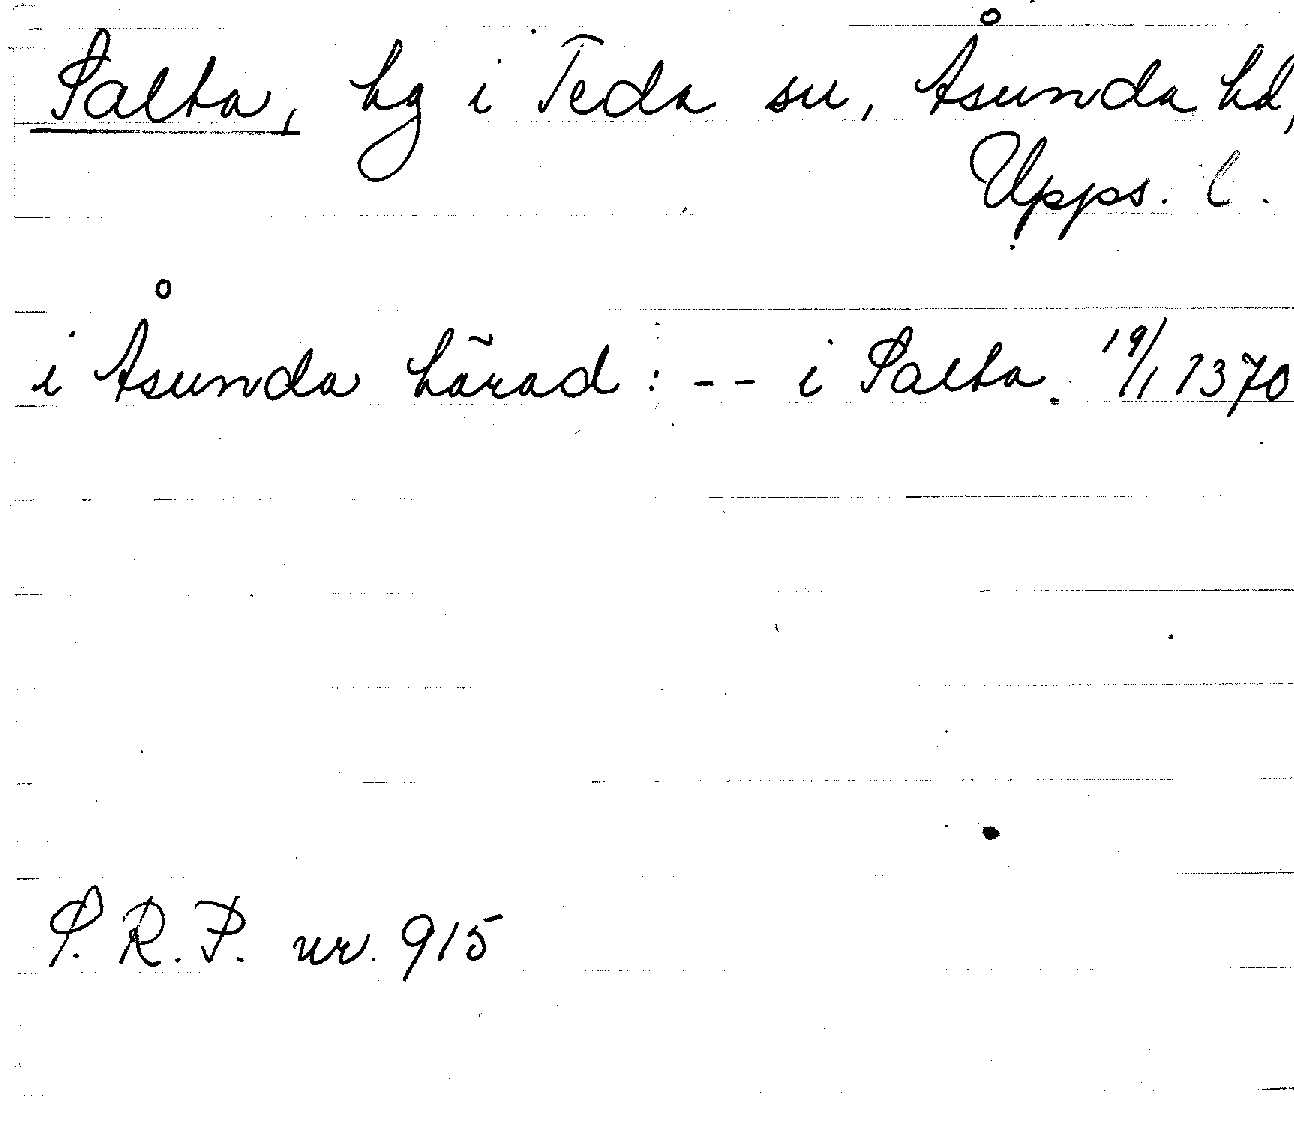 Salta, hg i Teda sn, Åsunda hd,
Upps. l.
i Åsunda härad : -- i Salta. 19/1 1370
S. R. P. nr. 915